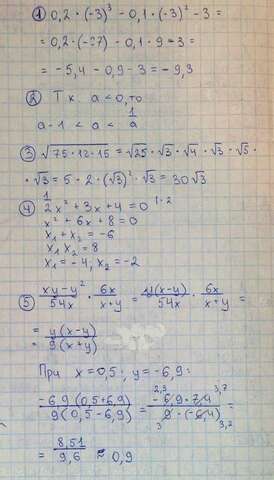 ① 0,2 · (-3)³ - 0,1 · (-3)² - 3 =
= 0,2 · (-27) - 0,1 · 9 - 3 =
= -5,4 - 0,9 - 3 = -9,3
② Т к а < 0, то
а - 1 < а < 1/а
③ √75 · 12 · 15 = √25 · √3 · √4 · √3 · √5 ·
· √3 = 5 · 2 · (√3)² · √3 = 30√3
④ 1/2 x² + 3x + 4 = 0 | · 2
x² + 6x + 8 = 0
x₁ + x₂ = -6
x₁ x₂ = 8
x₁ = -4; x₂ = -2
⑤ xy - y²/54x · 6x/x+y = y(x-y)/54x · 6x/x+y =
= y(x-y)/9(x+y)
При x = 0,5; y = -6,9:
-6,9(0,5+6,9)/9(0,5-6,9) = -6,9 · 7,4/9 · (-6,4) =
2,3 3,7
3 3,2
= 8,51/9,6 ≈ 0,9